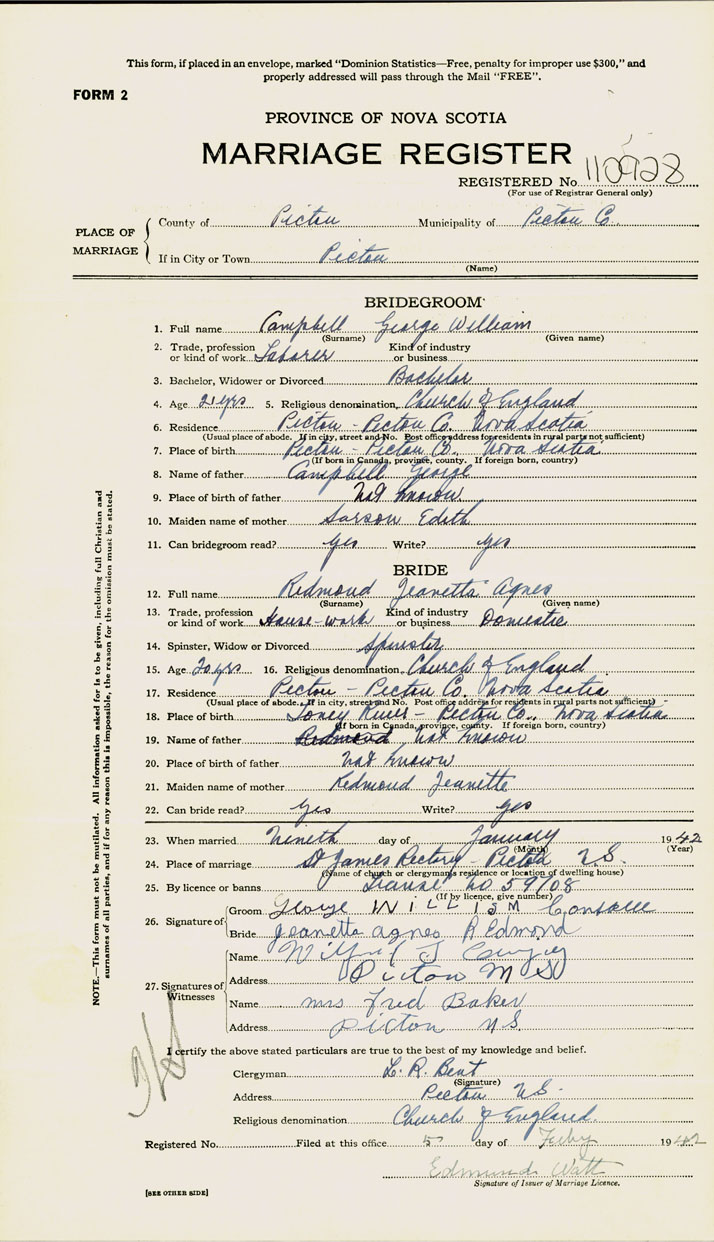 This form, if placed in an envelope, marked "Dominion Statistics—Free, penalty for improper use $300," and
properly addressed will pass through the Mail "FREE".
FORM 2
PROVINCE OF NOVA SCOTIA
MARRIAGE REGISTER
REGISTERED No. 110928
(For use of Registrar General only)
PLACE OF MARRIAGE
County of Pictou Municipality of Pictou Co.
If in City or Town Pictou
(Name)
BRIDEGROOM
1. Full name Campbell George William
(Surname) (Given name)
2. Trade, profession or kind of work Laborer Kind of industry or business
3. Bachelor, Widower or Divorced Bachelor
4. Age 21 yrs 5. Religious denomination Church of England
6. Residence Pictou - Pictou Co. Nova Scotia
(Usual place of abode. If in city, street and No. Post office address for residents in rural parts not sufficient)
7. Place of birth Pictou - Pictou Co. Nova Scotia
(If born in Canada, province, county. If foreign born, country)
8. Name of father Campbell George
9. Place of birth of father Not known
10. Maiden name of mother Sarson Edith
11. Can bridegroom read? Yes Write? Yes
BRIDE
12. Full name Redmond Jeanetta Agnes
(Surname) (Given name)
13. Trade, profession or kind of work House-work Kind of industry or business Domestic
14. Spinster, Widow or Divorced Spinster
15. Age 20 yrs 16. Religious denomination Church of England
17. Residence Pictou - Pictou Co. Nova Scotia
(Usual place of abode. If in city, street and No. Post office address for residents in rural parts not sufficient)
18. Place of birth Toney River - Pictou Co., Nova Scotia
(If born in Canada, province, county. If foreign born, country)
19. Name of father Redmond Not known
20. Place of birth of father Not known
21. Maiden name of mother Redmond Jeanette
22. Can bride read? Yes Write? Yes
23. When married Nineth day of January 1942
(Month) (Year)
24. Place of marriage St James Rectory - Pictou N.S.
(Name of church or clergyman's residence or location of dwelling house)
25. By licence or banns License No. 59108
(If by licence, give number)
26. Signature of
Groom George William
Bride Jeanetta Agnes Redmond
27. Signatures of Witnesses
Name Wilfred J
Address Pictou N S
Name Mrs Fred Baker
Address Pictou N.S.
I certify the above stated particulars are true to the best of my knowledge and belief.
Clergyman L. R. Bent
(Signature)
Address Pictou N.S.
Religious denomination Church of England
Registered No. Filed at this office 5 day of 1942
Edmund Watt
Signature of Issuer of Marriage Licence.
[SEE OTHER SIDE]
NOTE.—This form must not be mutilated. All information asked for is to be given, including full Christian and
surnames of all parties, and if for any reason this is impossible, the reason for the omission must be stated.